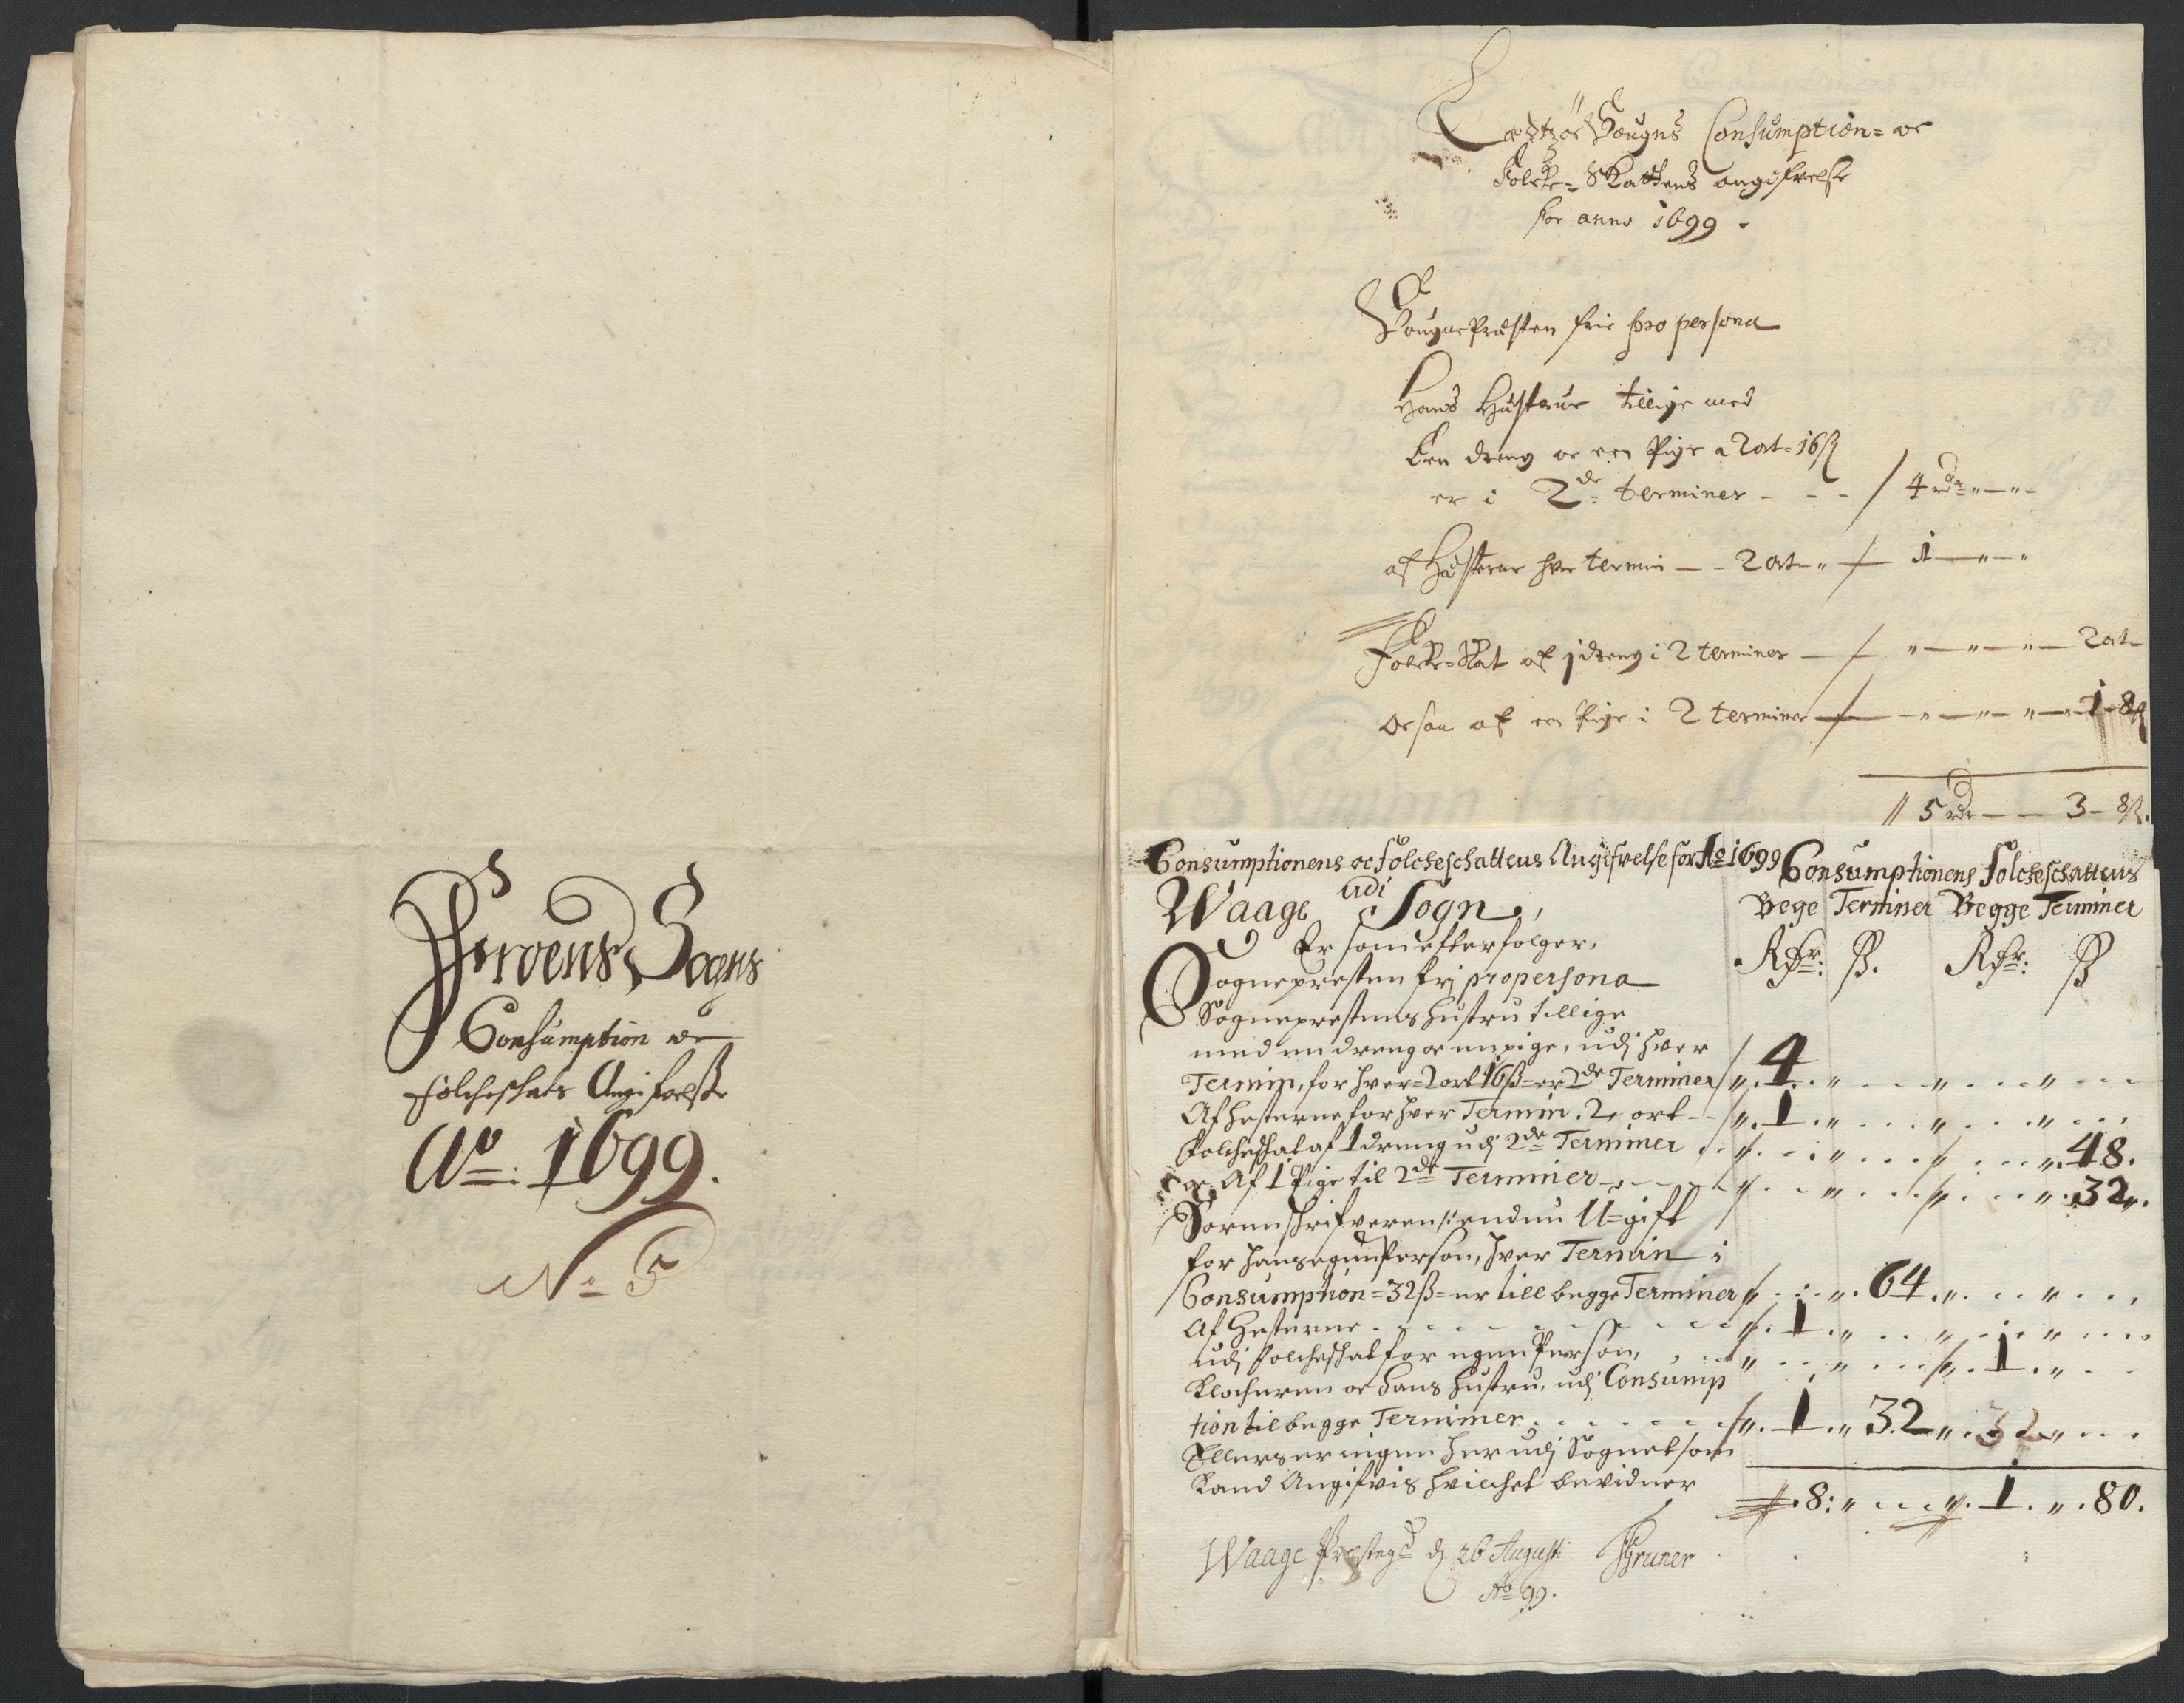 Sogns
Consumption oc
folcheskats Angifvelse
Ao: 1699.
No 5
Sougns Consumption= oc
Folcke= Skattens angifvelse
for anno 1699.
SougnePræsten frie pro persona
Hans Hustrue tillige med
Een dreng oc een Pige a 2 ort= 16 ß
er i 2de terminer - - - / 4 rdr " — " -
af Hæsterne hver termin — - 2 ort — " / — 1 — " — "
Folcke=Skat af 1 dreng i 2 terminer — / — " — " — " — 2 ort
oc saa af een Pige i 2 terminer — / — " — " — " — 1 - 8 ß
// 5 rdr — — 3 - 8 ß.
Consumptionens oc folcheschattens Angifvelse for Ao 1699
Consumptionens folcheschattens
Waage udi Sogn,
Bege Terminer Begge Terminer
Er som efterfølger,
Rdr: ß. Rdr: ß
Sognepresten fri pro persona
Sogneprestens hustru tillige
med en dreng oc en pige, udj hver
Termin, for hver = 2 ort 16 ß = er 2de Terminer / ". 4. " . . . " . . . " . . .
Af hesterne for hver Termin. 2 ort - - / ". 1. " . . . " . . . " . . .
Folcheschat af 1 dreng udj 2de Terminer . . " . . . " . . . " . . . ". 48.
oc Af 1 Pige til 2de Terminer - . - - - " . . . " . . . " . . . ". 32.
Sorenskrifveren /: endnu U=gift
for hans egen Person, hver Termin i
Consumption = 32 ß = er till begge Terminer " . . . ". 64. " . . . " . . .
Af Hesterne . . . . . . . ". 1. " . . . " . . . " . . .
udj folcheschat for egen Person, . . . " . . . " . . . ". 1. " . . .
Klocheren oc hans hustru, udj Consump
tion til begge Terminer . . . . . . ". 1. " 32 ". 32 " . . .
Ellers er ingen her udj Sognet som
kand Angifvis hvilchet bevidner
. 8: " . . . ". 1. ". 80.
Waage Præstegd d 26 Augusti Gruner
Ao 99.